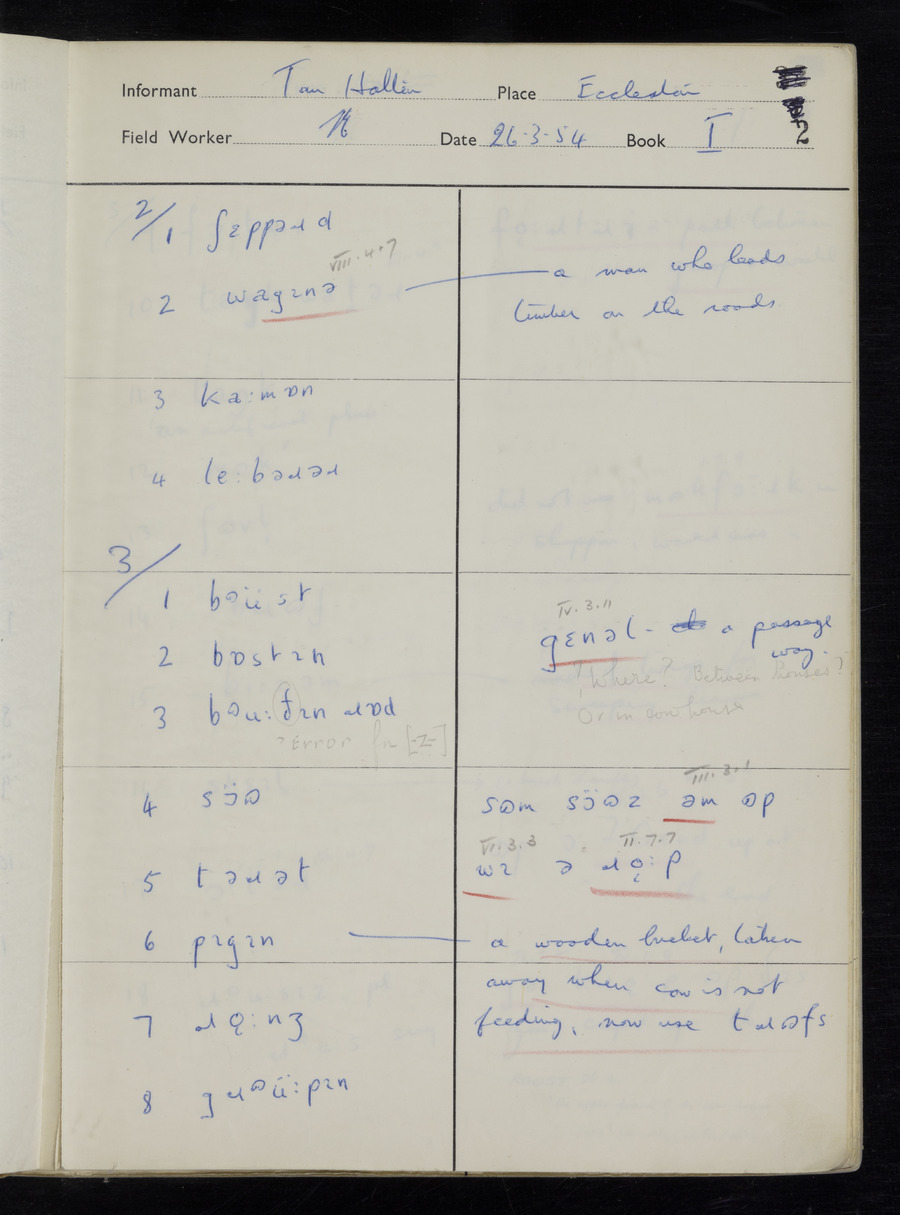 Informant Tom Hallin Place Eccleston
Field Worker Date 26·3·54 Book I 2
2/
1 ʃɛppəɹd
VIII·4·7
2 wagɪnə — a man who leads
timber on the roads.
3 ka:mɒn
4 le:bəɹəɹ
3/
1 bəüst
IV.3.11
gɛnəl - a passage
way.
2 bɒstɪn
? Where? Between houses?
Or in cow house
3 bəu:ʄɪn ɹɒd
? Error for [-z-]
III·3·1
4 sɔ̈ɒ sɒm sɔ̈ɒz əm ɒp
VI.3.3 II.7.7
wɪ ə ɹǫ:p
5 təɹət
6 pɪgɪn — a wooden bucket, taken
away when cow is not
7 ɹǫ:nʒ feeding, now use tɹɒfs
8 gɹəü:pɪn